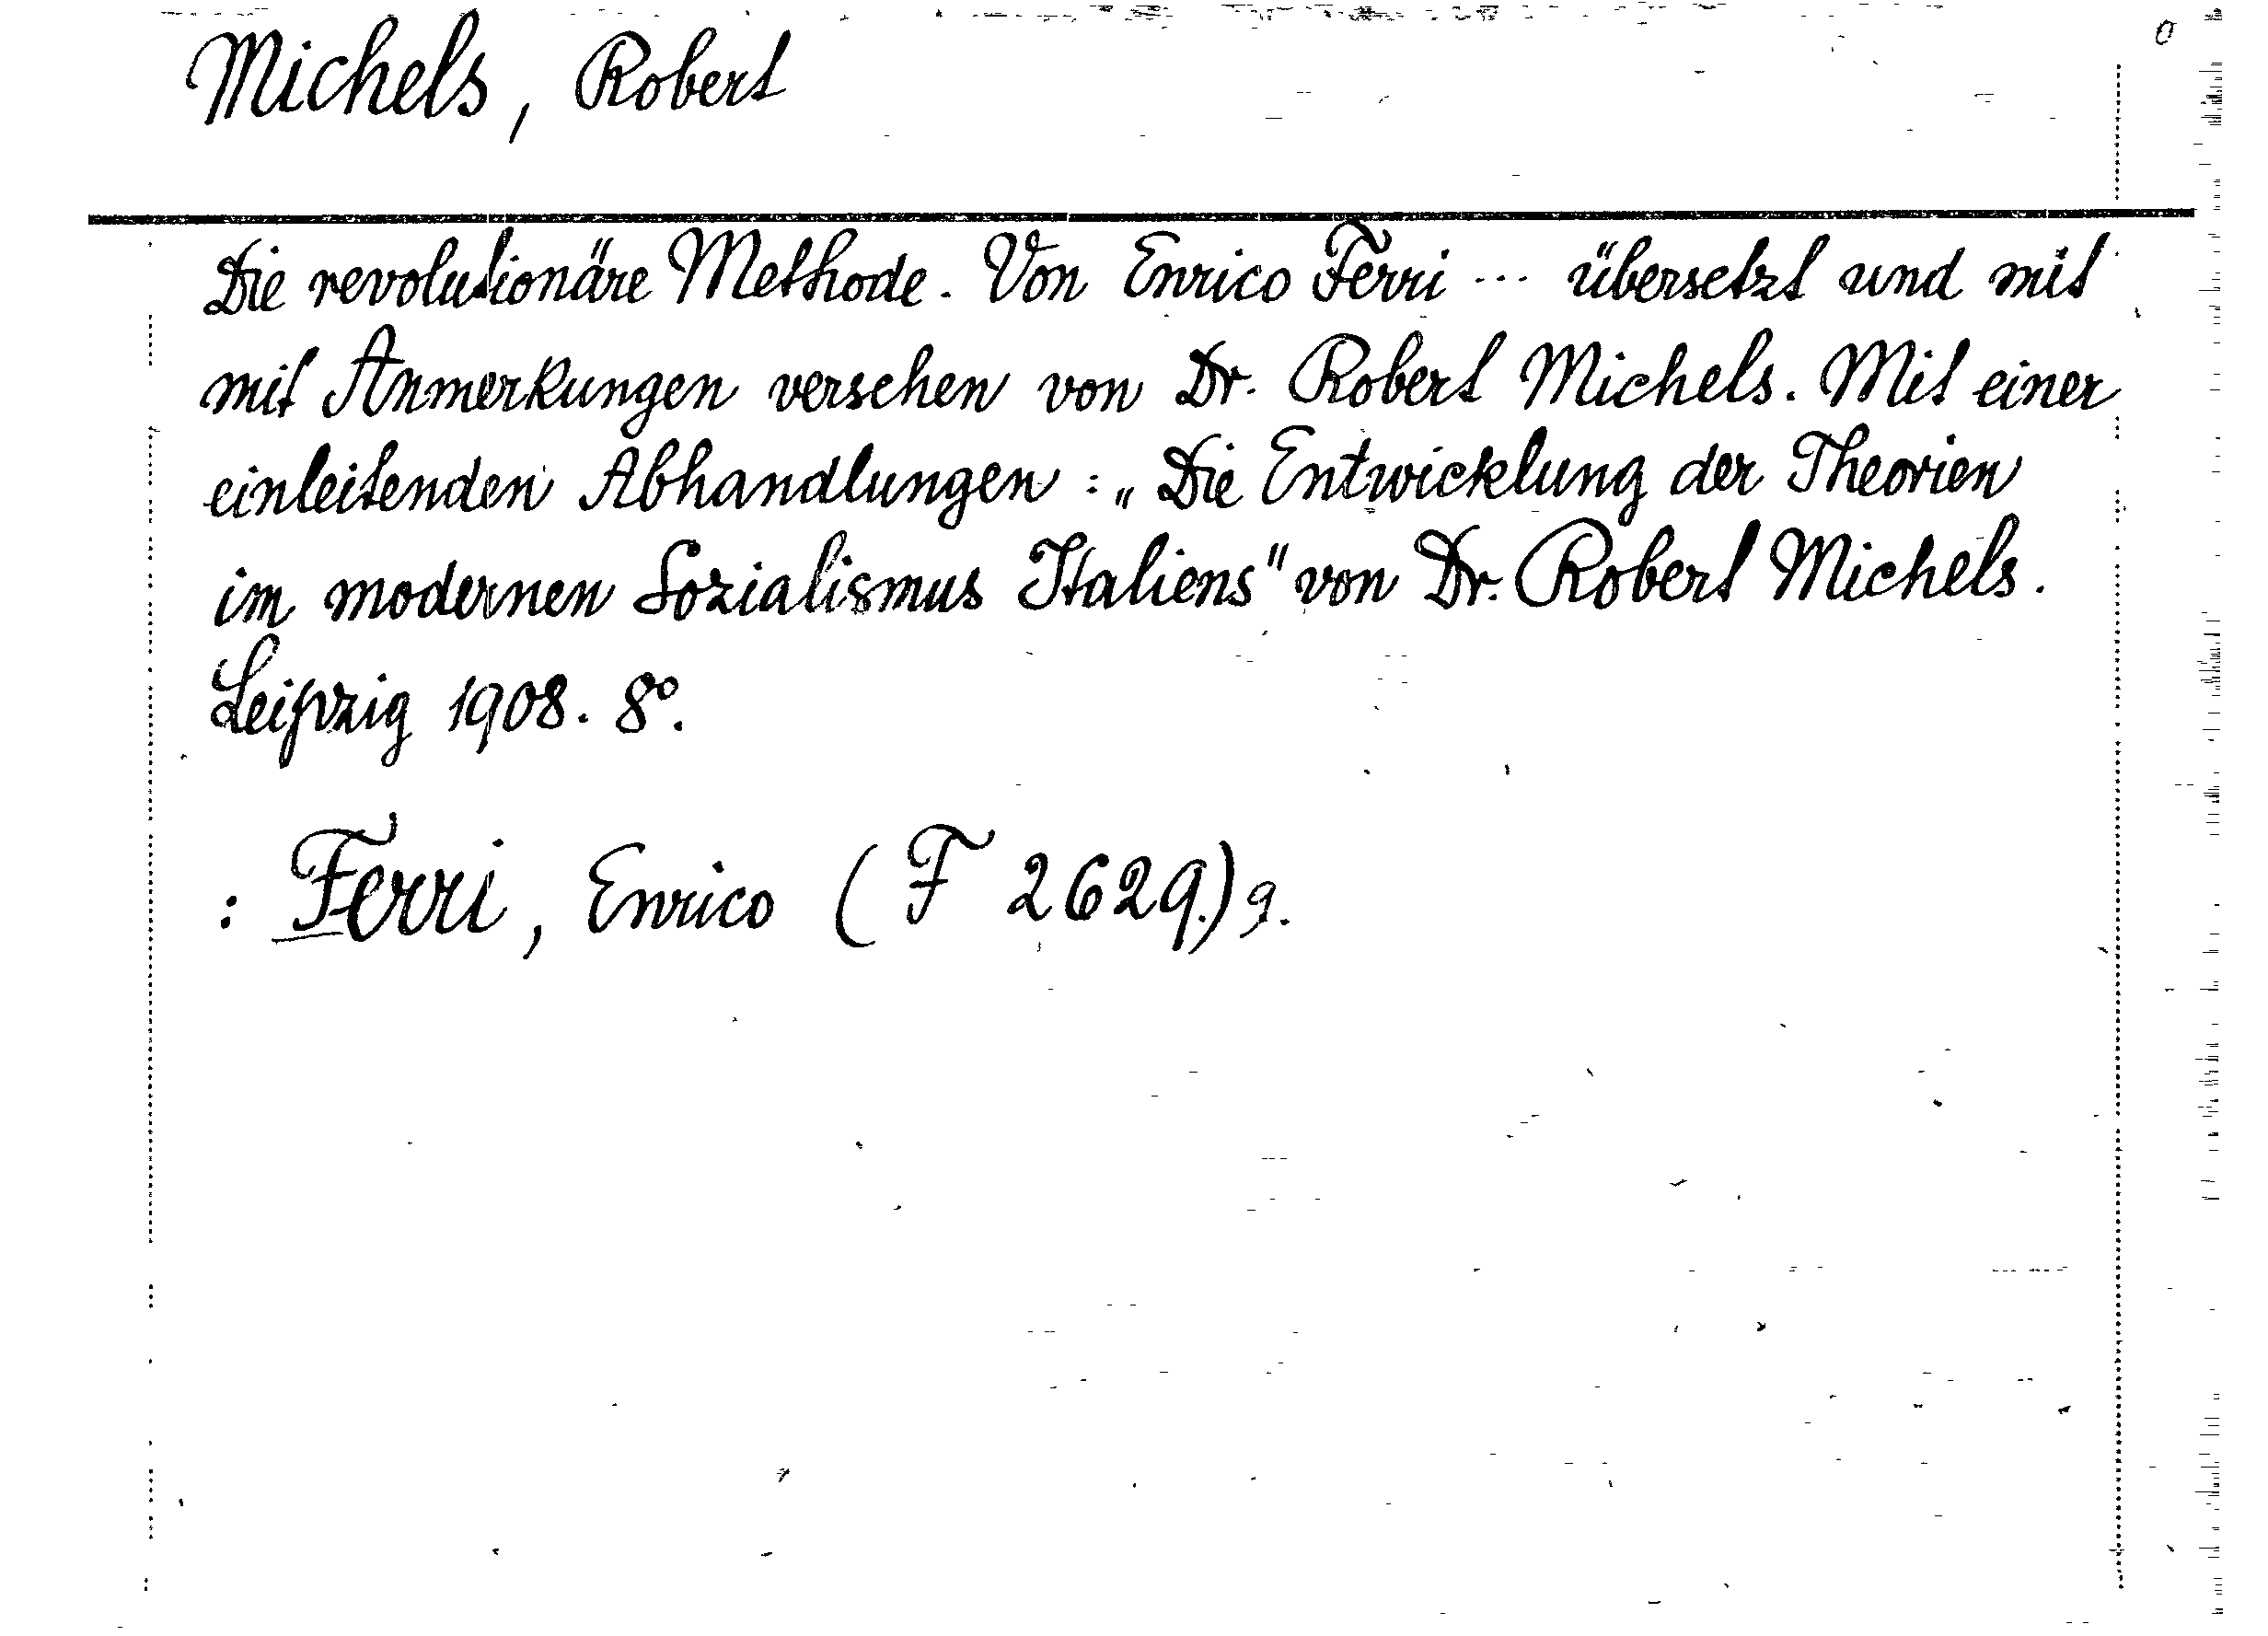 Michels, Robert
Die revolutionäre Methode. Von Enrico Ferri ... übersetzt und mit
mit Anmerkungen versehen von Dr. Robert Michels. Mit einer
einleitenden Abhandlungen: „Die Entwicklung der Theorien
im modernen Sozialismus Italiens" von Dr. Robert Michels.
Leipzig 1908. 8°.
: Ferri, Enrico (F 2629.) 9.